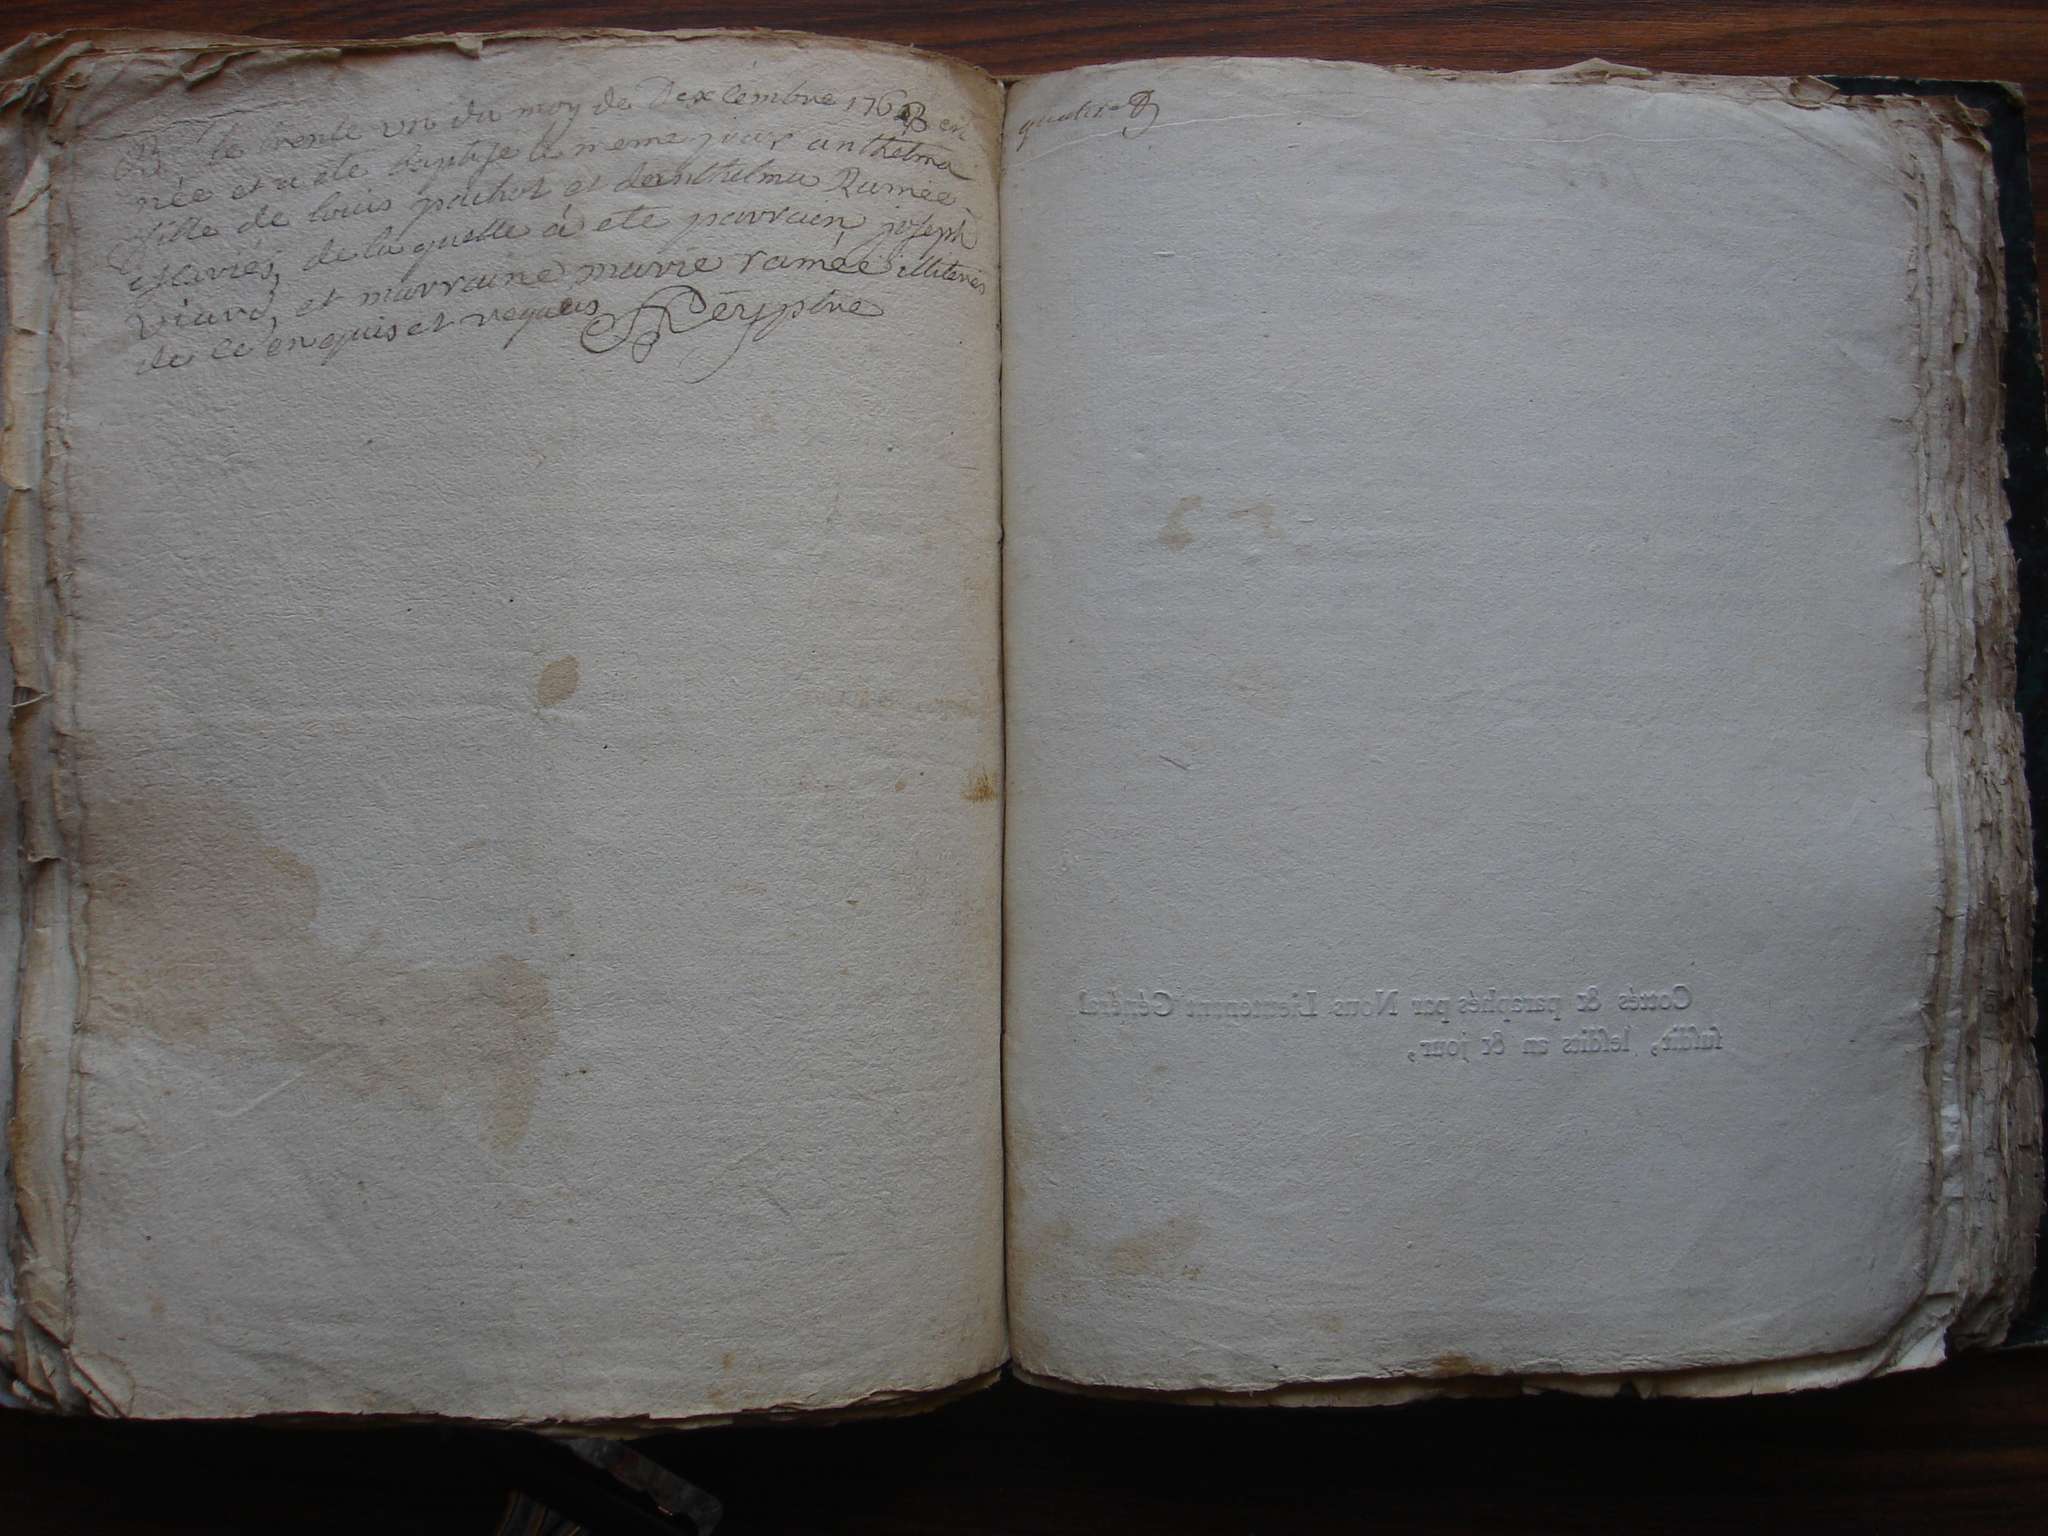 B le trente un du moy de Dexcembre 1768 est
née et a ete baptisé le meme jour anthelma
fille de louis pochot et danthelma Ramée
Mariés, de la quelle à ete parrain joseph
viard, et marraine marie ramée illiterés
de ce enquis et requis Réy ptre
quatre
Cottés & paraphés par Nous Lieutenant Général
susdit, lesdits an & jour,